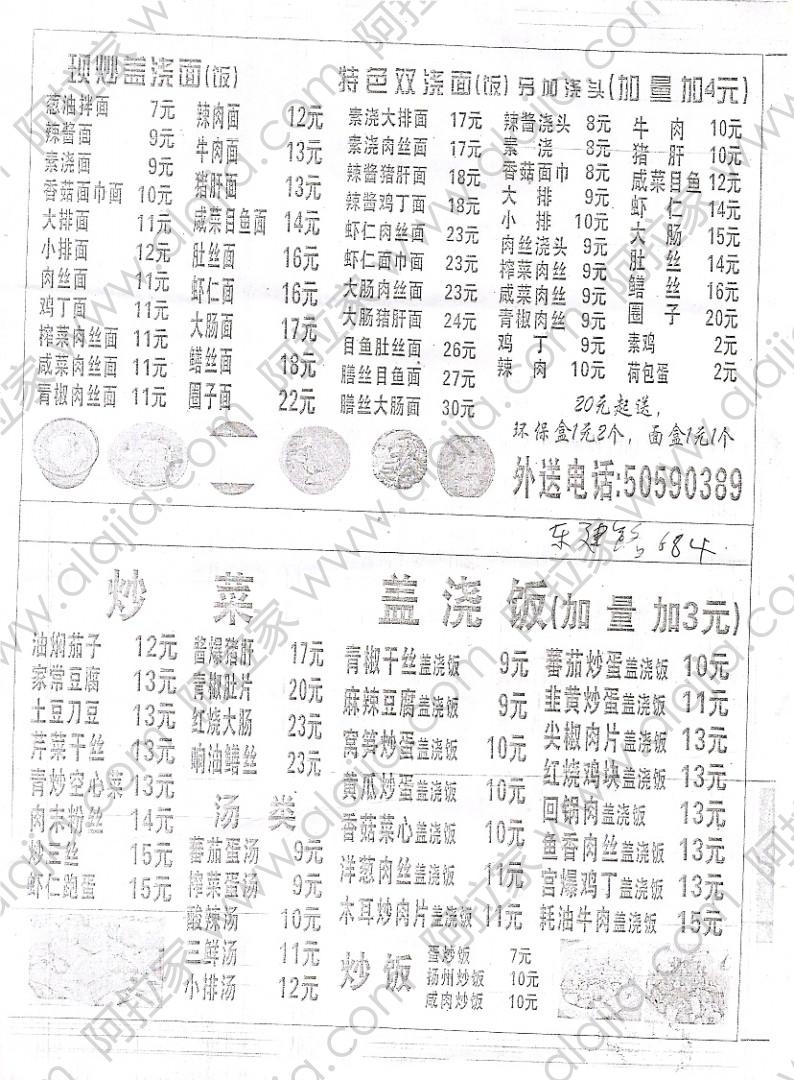 现炒盖浇面(饭)
葱油拌面 7元
辣酱面 9元
素浇面 9元
香菇面巾面 10元
大排面 11元
小排面 12元
肉丝面 11元
鸡丁面 11元
榨菜肉丝面 11元
咸菜肉丝面 11元
青椒肉丝面 11元
辣肉面 12元
牛肉面 13元
猪肝面 13元
咸菜目鱼面 14元
肚丝面 16元
虾仁面 16元
大肠面 17元
鳝丝面 18元
圈子面 22元
特色双浇面(饭)
素浇大排面 17元
素浇肉丝面 17元
辣酱猪肝面 18元
辣酱鸡丁面 18元
虾仁肉丝面 23元
虾仁面巾面 23元
大肠肉丝面 23元
大肠猪肝面 24元
目鱼肚丝面 26元
膳丝目鱼面 27元
膳丝大肠面 30元
另加浇头(加量加4元)
辣酱浇头 8元
素浇 8元
香菇面巾 8元
大排 9元
小排 10元
肉丝浇头 9元
榨菜肉丝 9元
咸菜肉丝 9元
青椒肉丝 9元
鸡丁 9元
辣肉 10元
牛肉 10元
猪肝 10元
咸菜目鱼 12元
虾仁 14元
大肠 15元
肚丝 14元
鳝丝 16元
圈子 20元
素鸡 2元
荷包蛋 2元
20元起送，
环保盒1元2个，面盒1元1个
外送电话:50590389
东建路684
炒菜
油焖茄子 12元
家常豆腐 13元
土豆刀豆 13元
芹菜干丝 13元
青炒空心菜 13元
肉末粉丝 14元
炒三丝 15元
虾仁跑蛋 15元
酱爆猪肝 17元
青椒肚片 20元
红烧大肠 23元
响油鳝丝 23元
汤类
蕃茄蛋汤 9元
榨菜蛋汤 9元
酸辣汤 10元
三鲜汤 11元
小排汤 12元
盖浇饭(加量加3元)
青椒干丝盖浇饭 9元
麻辣豆腐盖浇饭 9元
窝笋炒蛋盖浇饭 10元
黄瓜炒蛋盖浇饭 10元
香菇菜心盖浇饭 10元
洋葱肉丝盖浇饭 11元
木耳炒肉片盖浇饭 11元
蕃茄炒蛋盖浇饭 10元
韭黄炒蛋盖浇饭 11元
尖椒肉片盖浇饭 13元
红烧鸡块盖浇饭 13元
回锅肉盖浇饭 13元
鱼香肉丝盖浇饭 13元
宫爆鸡丁盖浇饭 13元
耗油牛肉盖浇饭 15元
炒饭
蛋炒饭 7元
扬州炒饭 10元
咸肉炒饭 10元
阿拉家 www.alajia.com